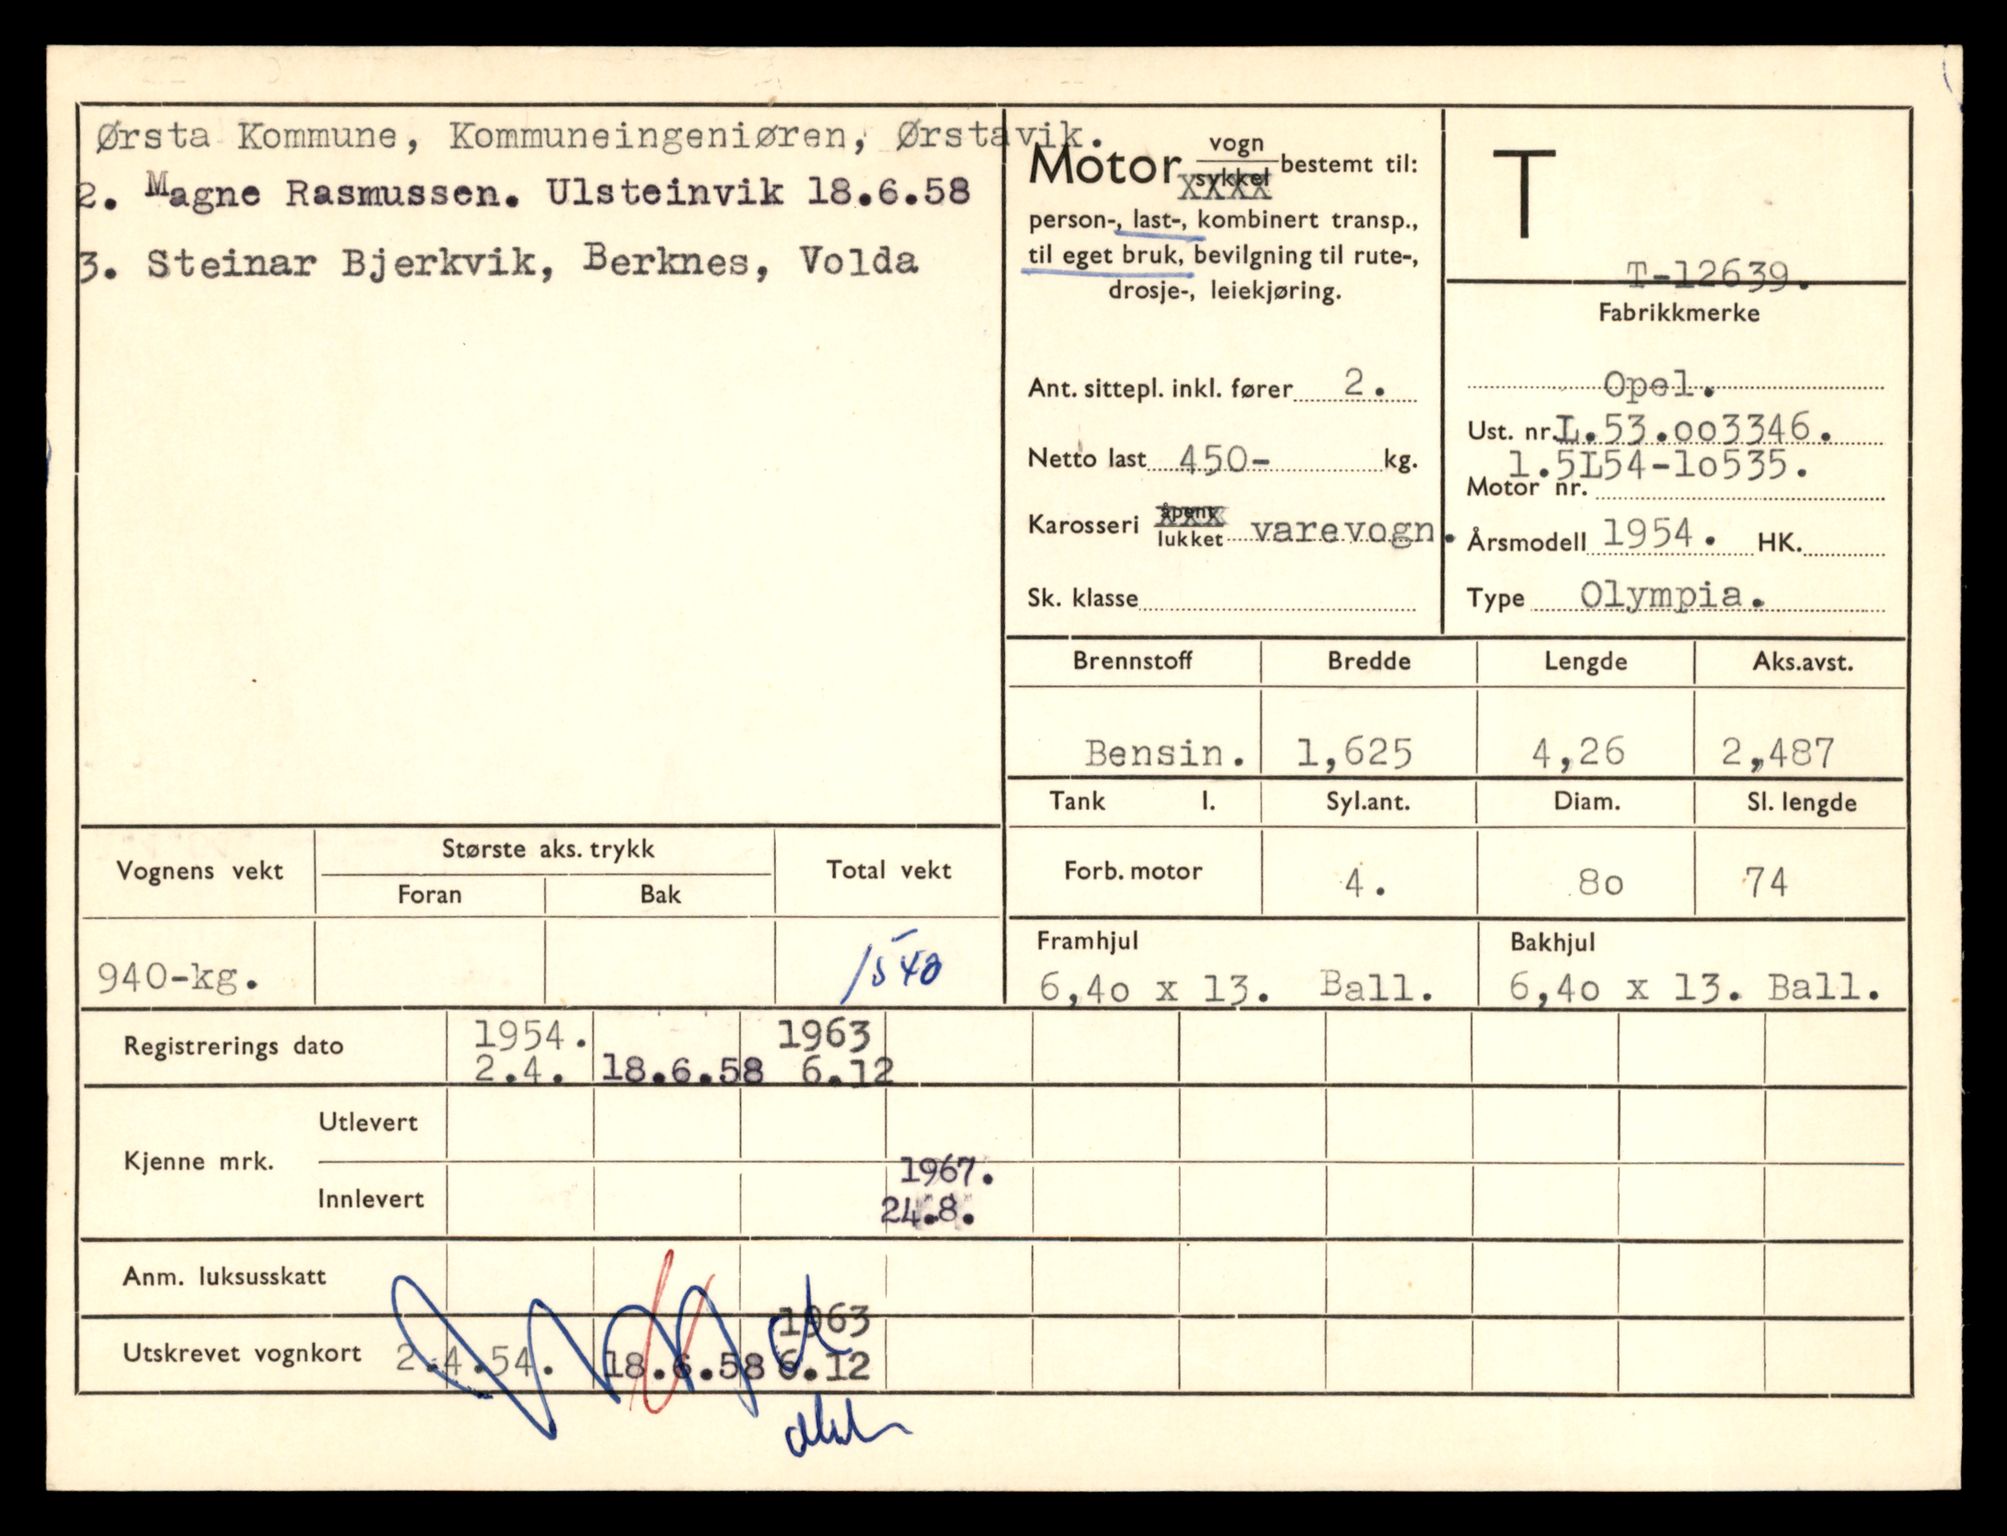 Ørsta Kommune, Kommuneingeniøren, Ørstavik.
2. Magne Rasmussen. Ulsteinvik 18.6.58
3. Steinar Bjerkvik, Berknes, Volda
Motor vogn sykkel bestemt til:
XXXX
person-, last-, kombinert transp.,
til eget bruk, bevilgning til rute-,
drosje-, leiekjøring.
Ant. sittepl. inkl. fører 2.
Netto last 450- kg.
Karosseri åpent lukket varevogn.
XXX
Sk. klasse
T
T-12639.
Fabrikkmerke
Opel.
Ust. nr. L.53.oo3346.
1.5L54-1o535.
Motor nr.
Årsmodell 1954. HK.
Type Olympia.
Brennstoff Bredde Lengde Aks.avst.
Bensin. 1,625 4,26 2,487
Tank l. Syl.ant. Diam. Sl. lengde
Forb. motor 4. 8o 74
Framhjul Bakhjul
6,4o x 13. Ball. 6,4o x 13. Ball.
Vognens vekt Største aks. trykk Total vekt
Foran Bak
940-kg. 1540
Registrerings dato 1954. 1963
2.4. 18.6.58 6.12
Kjenne mrk. Utlevert
Innlevert 1967.
24.8.
Anm. luksusskatt
1963
Utskrevet vognkort 2.4.54. 18.6.58 6.12